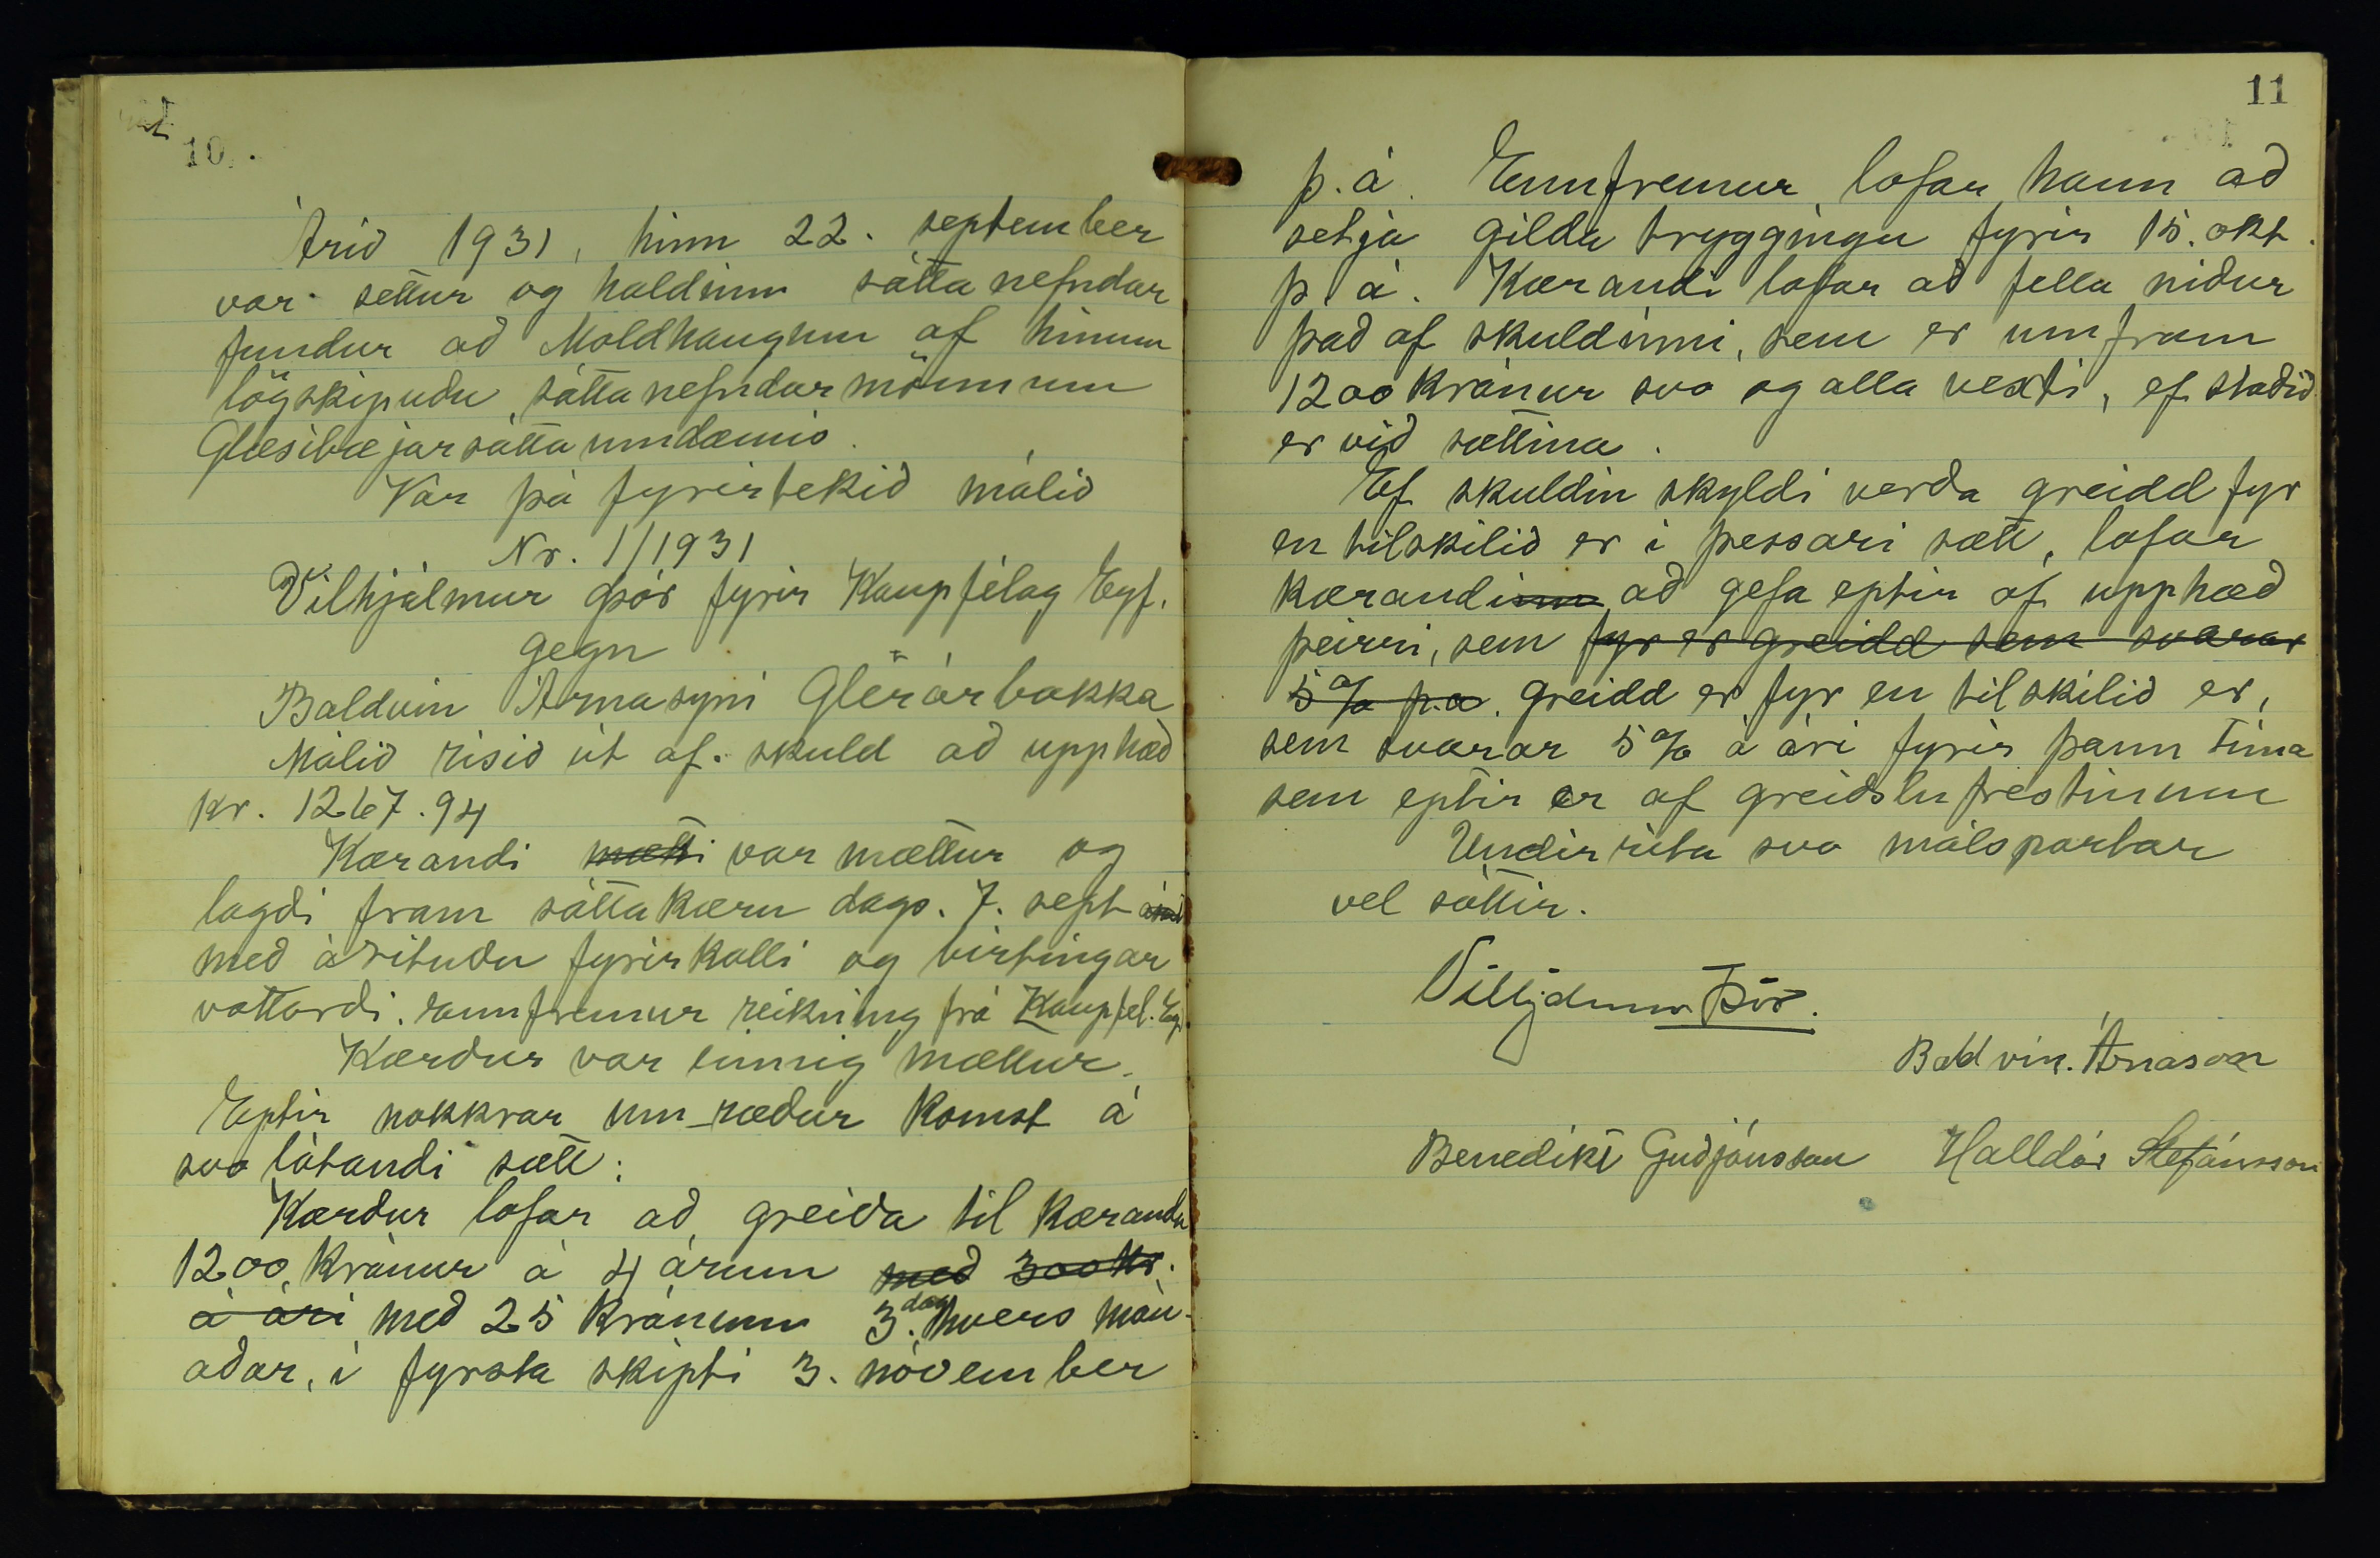 10.
Árið 1931, hinn 22. september
var settur og haldinn sáttanefndar
fundur að Moldhaugum af hinum
lögskipuðu sáttanefndarmönnum
Glæsibæjarsáttaumdæmis.
Var þá fyrirtekið málið
Nr. 1/1931
Vilhjálmur Þór fyrir Kaupfélag Eyf.
gegn
Baldvin Árnasyni Glerárbakka
Málið risið út af skuld að upphæð
kr. 1267.94
Kærandi mætti var mættur og
lagði fram sáttakæru dags. 7. sept
með árituðu fyrirkalli og birtingar
vottorði. ennfremur reikning frá Kaupfel. Ey.
Kærður var einnig mættur.
Eptir nokkrar um-ræður komst á
svo látandi sætt:
Kærður lofar að greiða til kæranda
1200 krónur á 4 árum með 300 kr.
á ári með 25 krónum 3. dag hvers mán-
aðar, í fyrsta skipti 3. nóvember
11
þ.á. Ennfremur lofar hann að
setja gilda tryggingu fyrir 15. okt.
þ.á. Kærandi lofar að fella niður
það af skuldinni, sem er umfram
1200 krónur svo og alla vexti, ef staðið
er við sættina.
Ef skuldin skyldi verða greidd fyr
en tilskilið er í þessari sætt, lofar
kærandinn að gefa eptir af upphæð
þeirri, sem fyr er greidd sem svarar
5% p.a. greidd er fyr en tilskilið er,
sem svarar 5% á ári fyrir þann tíma
sem eptir er af greiðslufrestinum
Undirrita svo málspartar
vel sáttir.
Vilhjálmur Þór.
Baldvin. Árnason
Benedikt Guðjónsson Halldór Stefánsson